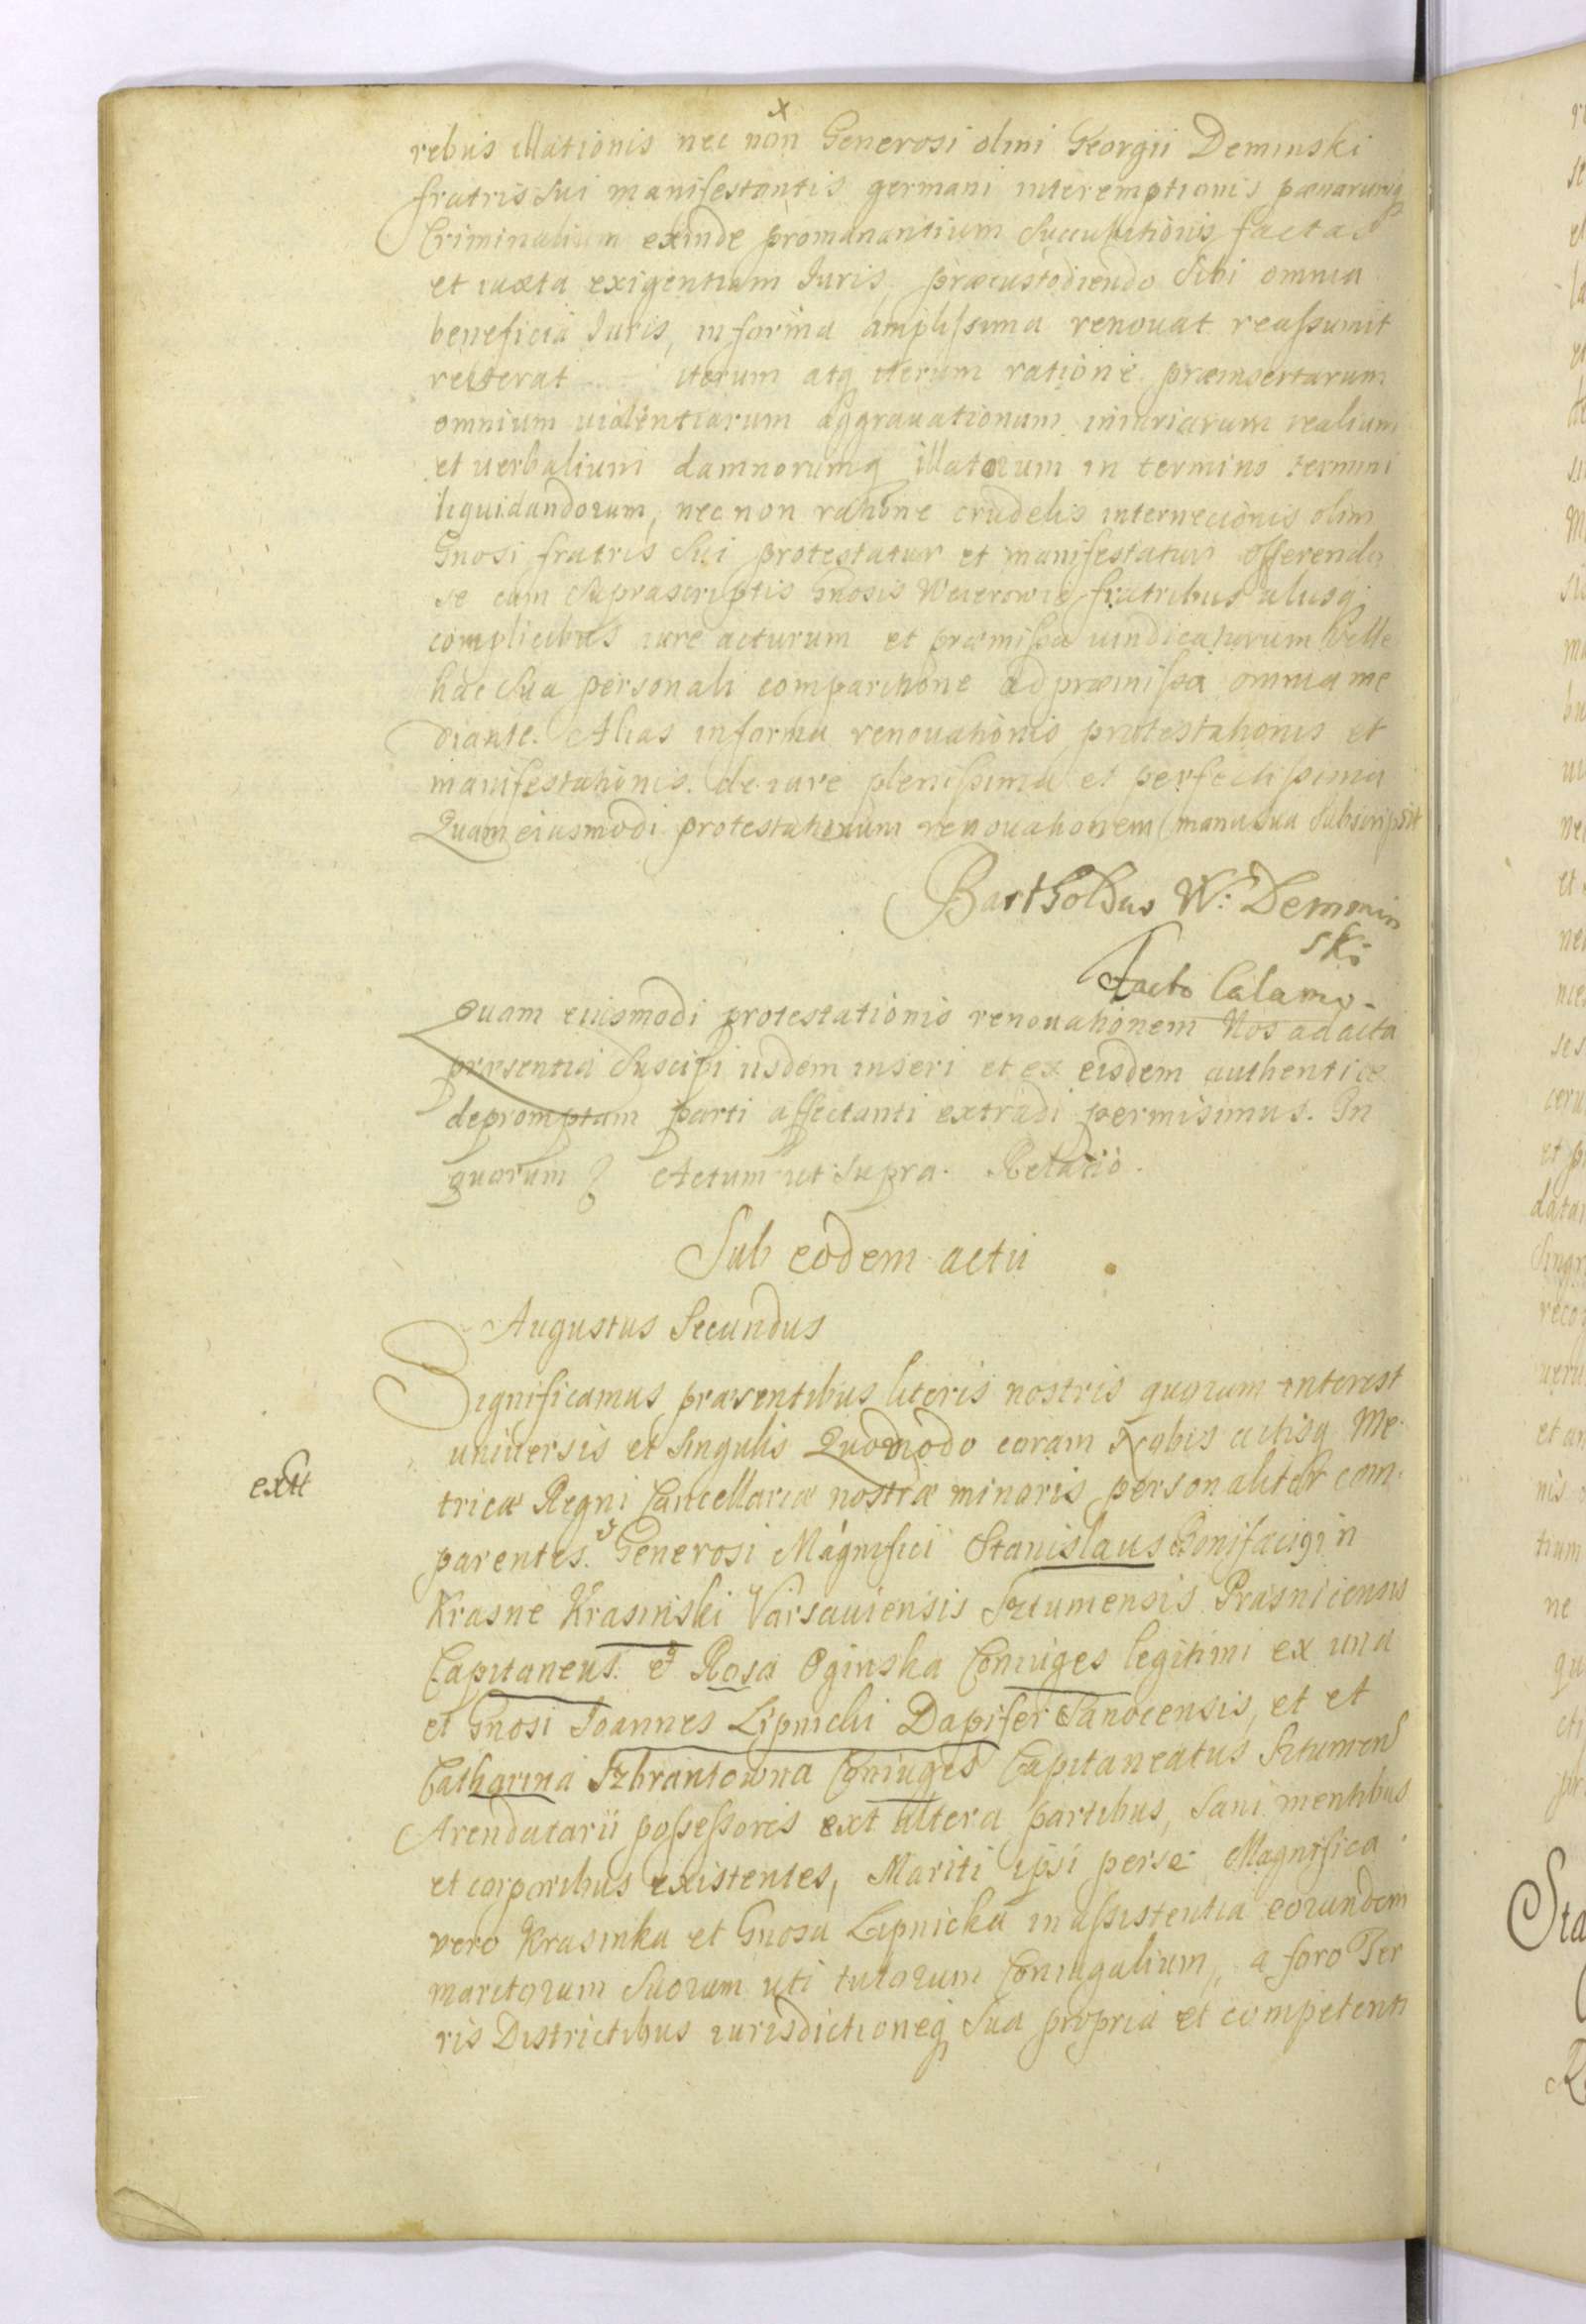 rebus illationis nec non Generosi olim Georgii Deminski
fratris sui manifestantis germani interemptionis pænarumq
Criminalium exinde promanantium succubitionis factas
et iuxta exigentiam Iuris, præcustodiendo sibi omnia
beneficia Iuris, in forma amplissima renouat reassumit
reiterat iterum atq iterum ratione præinsertarum
omnium uiolentiarum aggrauationum iniuriarum realium
et uerbalium damnorumq illatorum in termino termini
liquidandorum, nec non ratione crudelis internecionis olim
Gnosi fratris sui protestatur et manifestatur offerendo
se cum suprascriptis Gnosis Weierowie fratribus aliisq
complicibus iure acturum et præmissa uindicaturum uelle
hac sua personali comparitione ad præmissa omnia me
diante. Alias in forma renouationis protestationis et
manifestationis de iure plenissima et perfectissima
Quam eiusmodi protestationum renouationem manu sua subscripsit
Bartholdus W: Demmin
ski
Tacto Calamo.
Quam eiusmodi protestationis renouationem Nos ad acta
præsentia suscipi iisdem inseri et ex eisdem authentice
depromptam parti affectanti extradi permisimus. In
quorum Actum ut supra. Relatio.
Sub eodem actu
Augustus Secundus
Significamus præsentibus literis nostris quorum interest
uniuersis et singulis Quomodo coram Nobis actisq Me
tricæ Regni Cancellariæ nostræ minoris personaliter com
extt
parentes. Generosi Magnifici Stanislaus Bonifacius in
Krasne Krasinski Varsauiensis Sztumensis Prasnicensis
Capitaneus. et Rosa Oginska Coniuges legitimi ex una
et Gnosi Ioannes Lipnicki Dapifer Sanocensis, et et
Catharina Szbrantowna Coniuges Capitaneatus Sztumens
Arendatarii possessores ext altera partibus, sani mentibus
et corporibus existentes, Mariti ipsi per se Magnifica
vero Krasinka et Gnosa Lipnicka in assistentia eorundem
maritorum suorum uti tutorum Coniugalium, a foro Ter
ris Districtibus iurisdictioneq sua propria et competenti